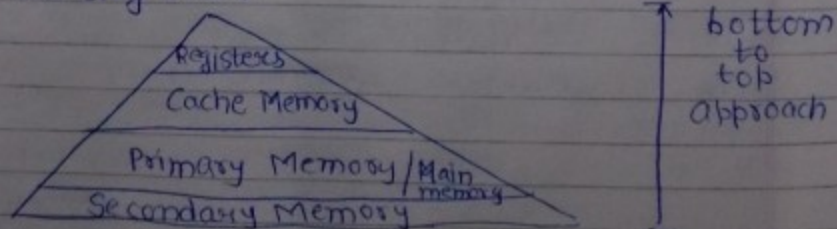 Registers
Cache Memory
Primary Memory/Main
memory
Secondary Memory
bottom
to
top
approach